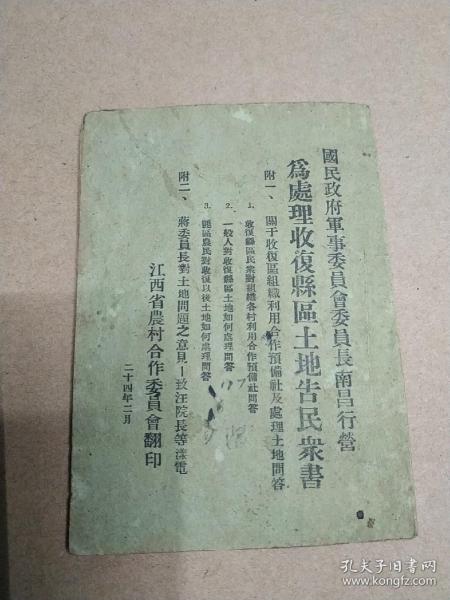 國民政府軍事委員會委員長南昌行營
為處理收復縣區土地告民衆書
附一、關于收復區組織利用合作預備社及處理土地問答
1. 收復縣區民衆對組織各村利用合作預備社問答
2. 一般人對收復縣區土地如何處理問答
3. 匪區農民對收復以後土地如何處理問答
附二、蔣委員長對土地問題之意見—致汪院長等漾電
江西省農村合作委員會翻印
二十四年二月
孔夫子旧书网
www.kongfz.com